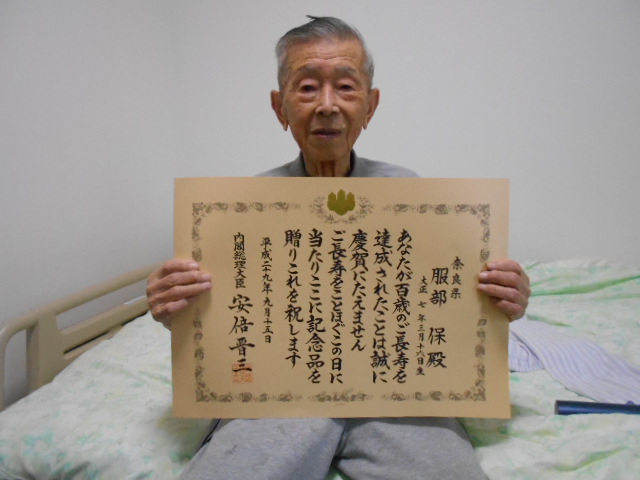 奈良県
服部 保 殿
大正 七 年 三月 十六日生
あなたが百歳のご長寿を
達成されたことは誠に
慶賀にたえません
ご長寿をことほぐこの日に
当たりここに記念品を
贈りこれを祝します
平成二十九年 九月 十五日
内閣総理大臣 安倍晋三